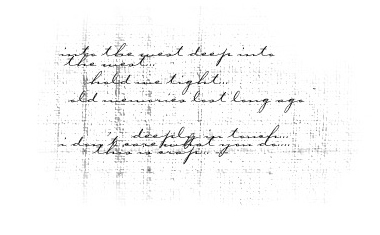 into the west deep into
the west...
hold me tight...
old memories lost long ago
deeply in touch...
i don't care what you do....
this is crap...